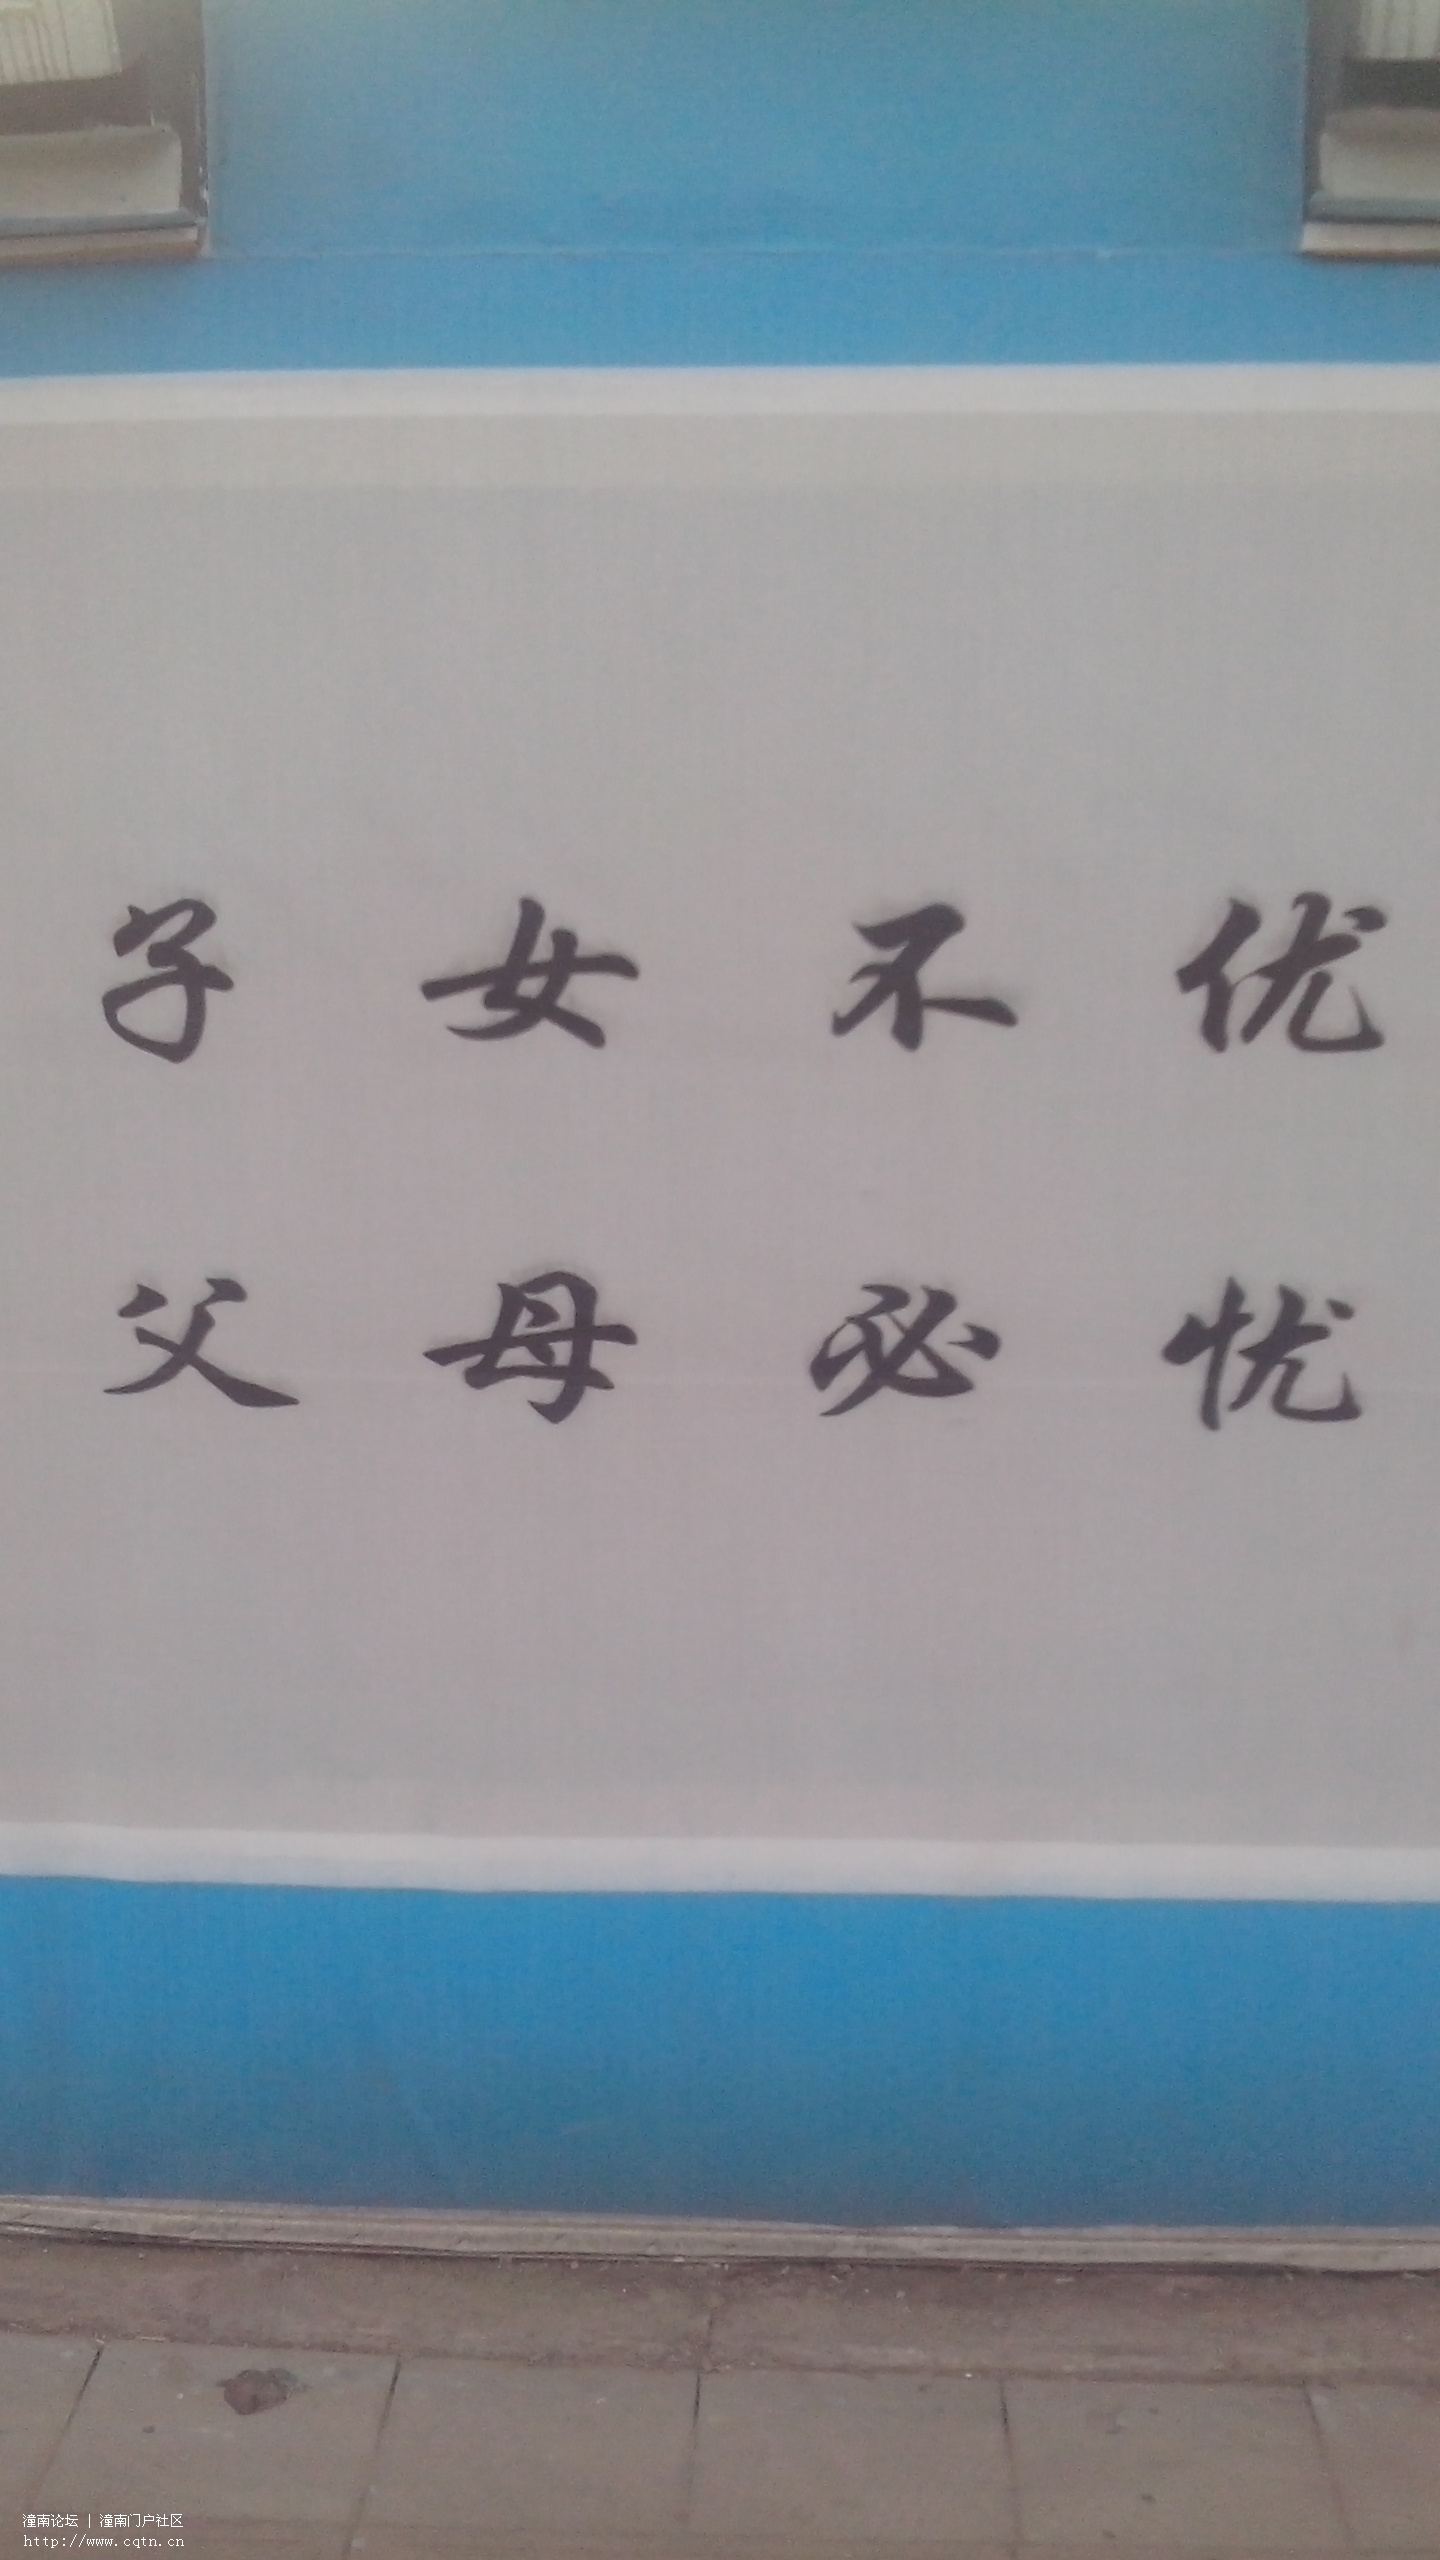 子女不优
父母必忧
潼南论坛 | 潼南门户社区
http://www.cqtn.cn